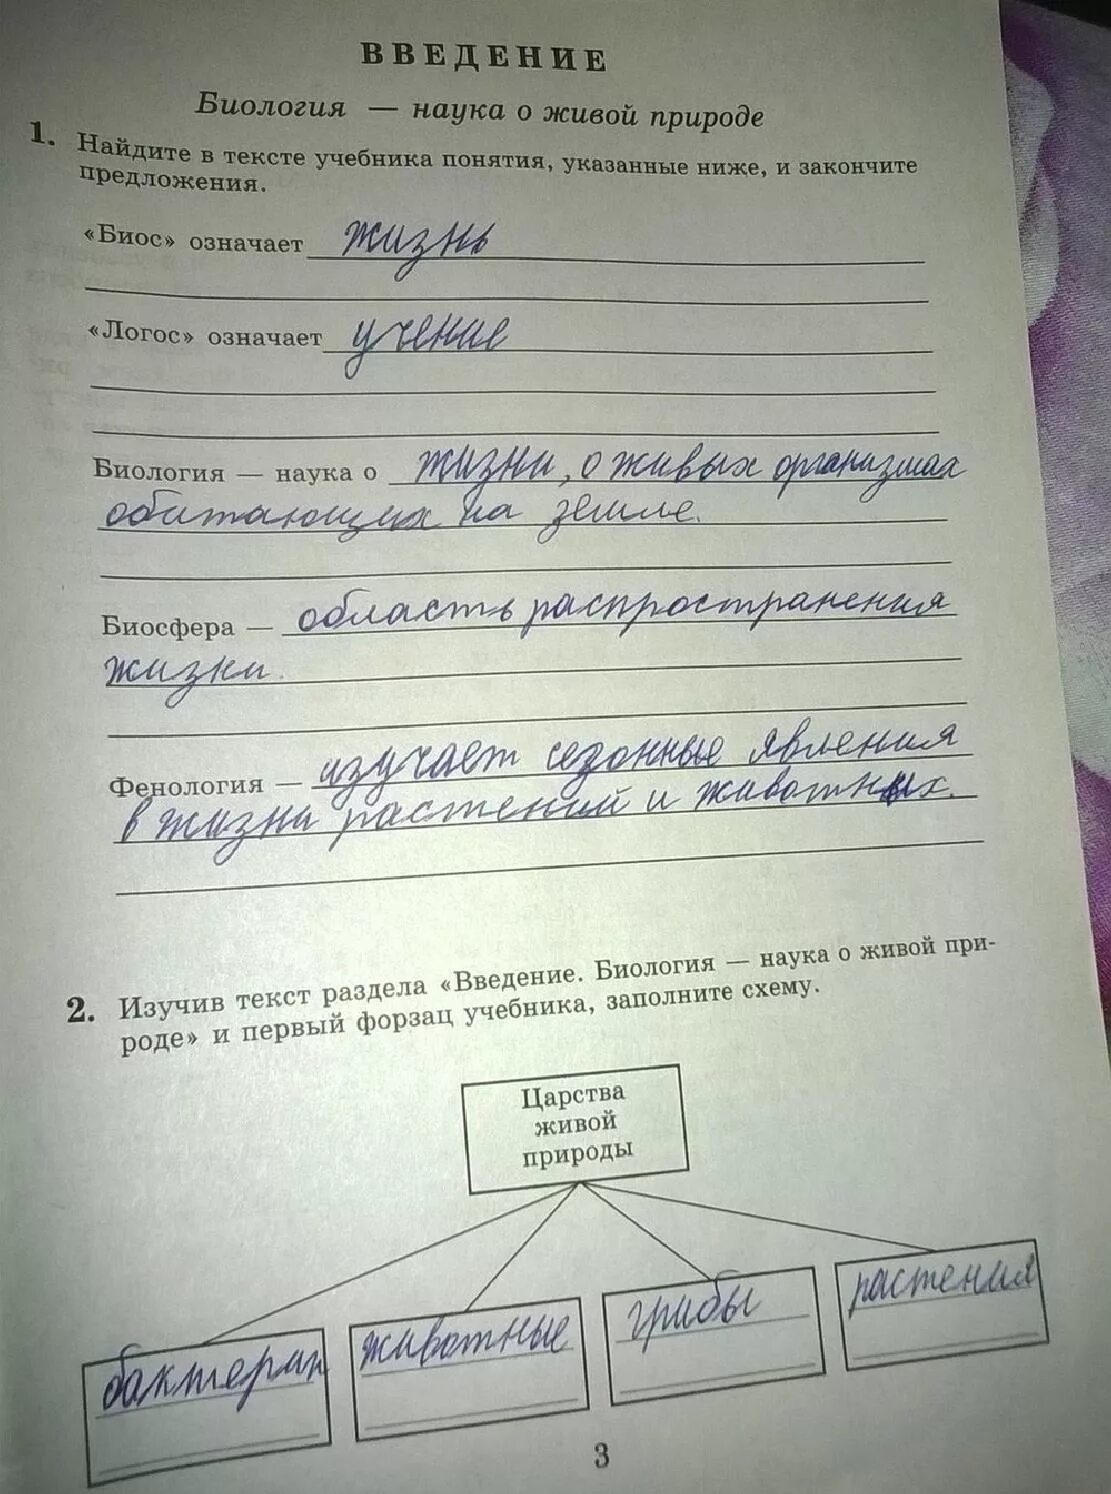 ВВЕДЕНИЕ
Биология — наука о живой природе
1. Найдите в тексте учебника понятия, указанные ниже, и закончите
предложения.
«Биос» означает жизнь
«Логос» означает учение
Биология — наука о жизни, о живых организмах
обитающих на земле.
Биосфера — область распространения
жизни.
Фенология — изучает сезонные явления
в жизни растений и животных.
2. Изучив текст раздела «Введение. Биология — наука о живой при-
роде» и первый форзац учебника, заполните схему.
Царства
живой
природы
бактерии
животные
грибы
растения
3